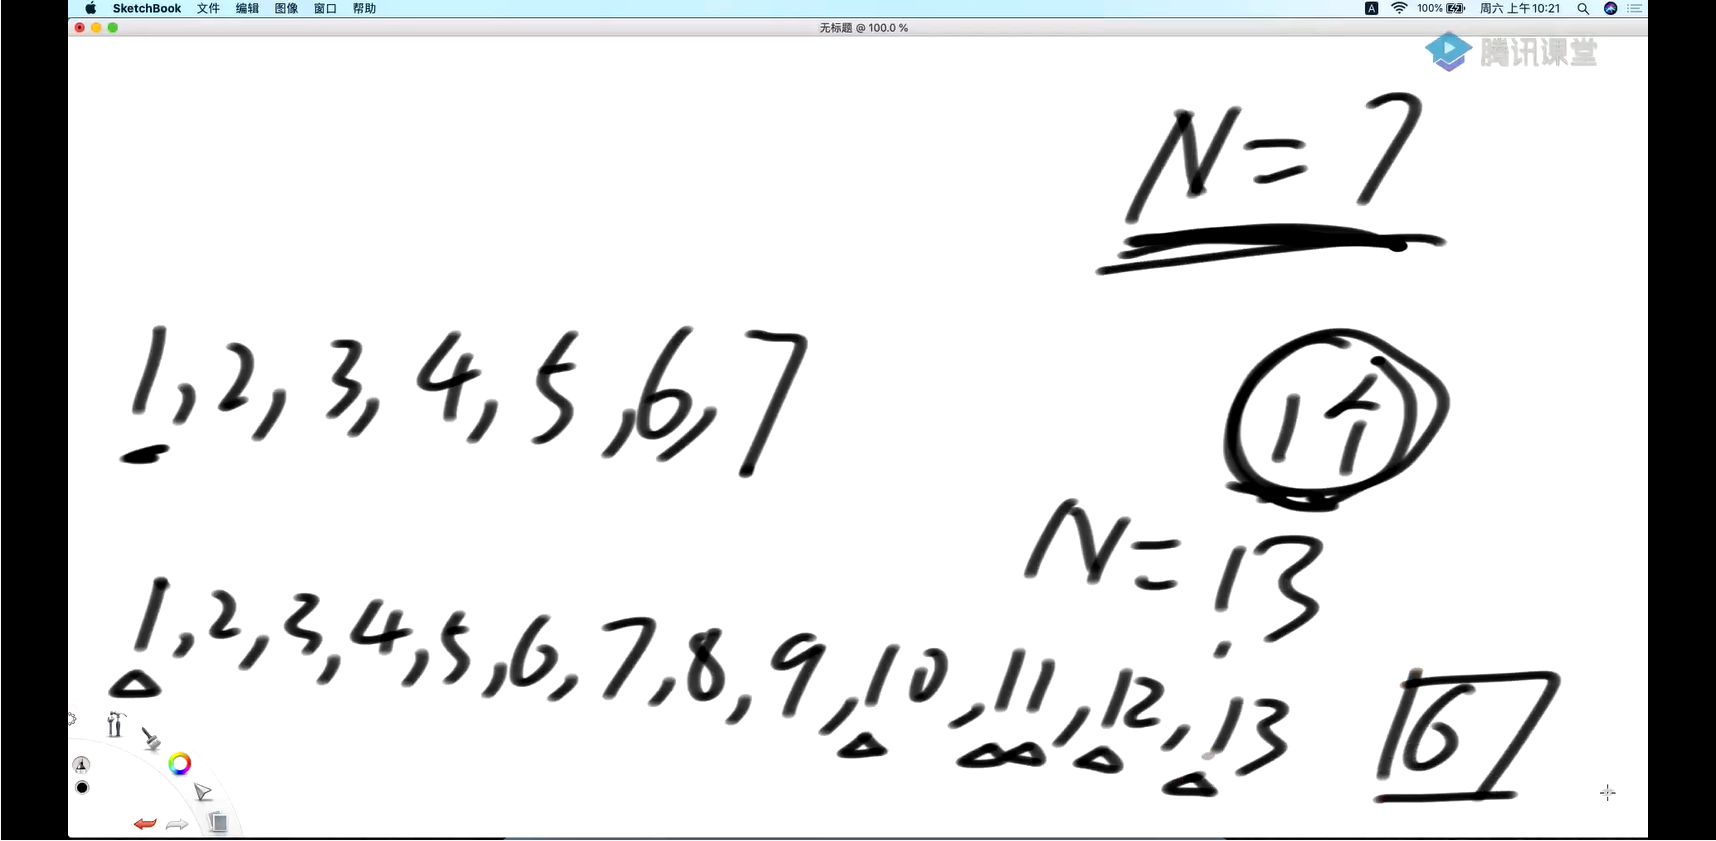 SketchBook 文件 编辑 图像 窗口 帮助 A 100% 周六 上午10:21
无标题 @ 100.0 %
腾讯课堂
N=7
1,2,3,4,5,6,7
1个
N=13
1,2,3,4,5,6,7,8,9,10,11,12,13
6